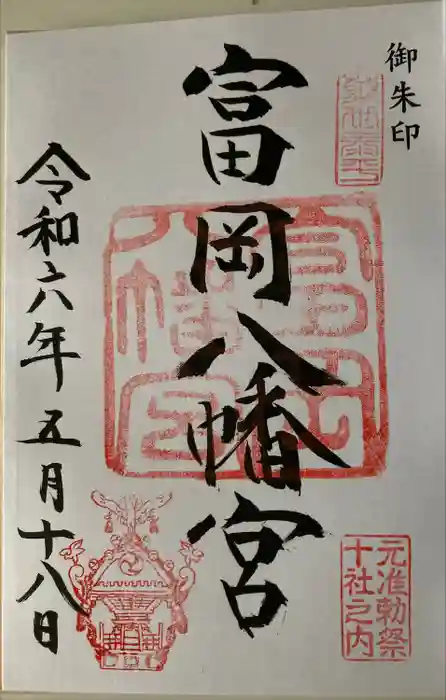 御朱印
富岡八幡宮
元准勅祭
十社之内
令和六年五月十八日